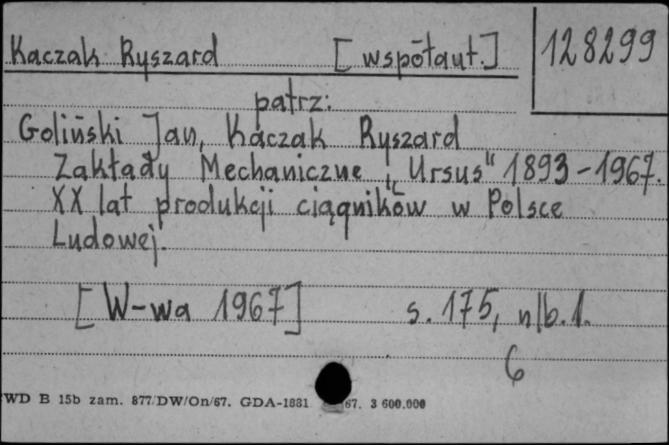 Kaczak Ryszard [współaut.] 128299
patrz:
Goliński Jan, Kaczak Ryszard
Zakłady Mechaniczne „Ursus" 1893-1967.
XX lat produkcji ciągników w Polsce
Ludowej.
[W-wa 1967] s. 175, nlb. 1.
6
WD B 15b zam. 877/DW/On/67. GDA-1881 67. 3 600.000